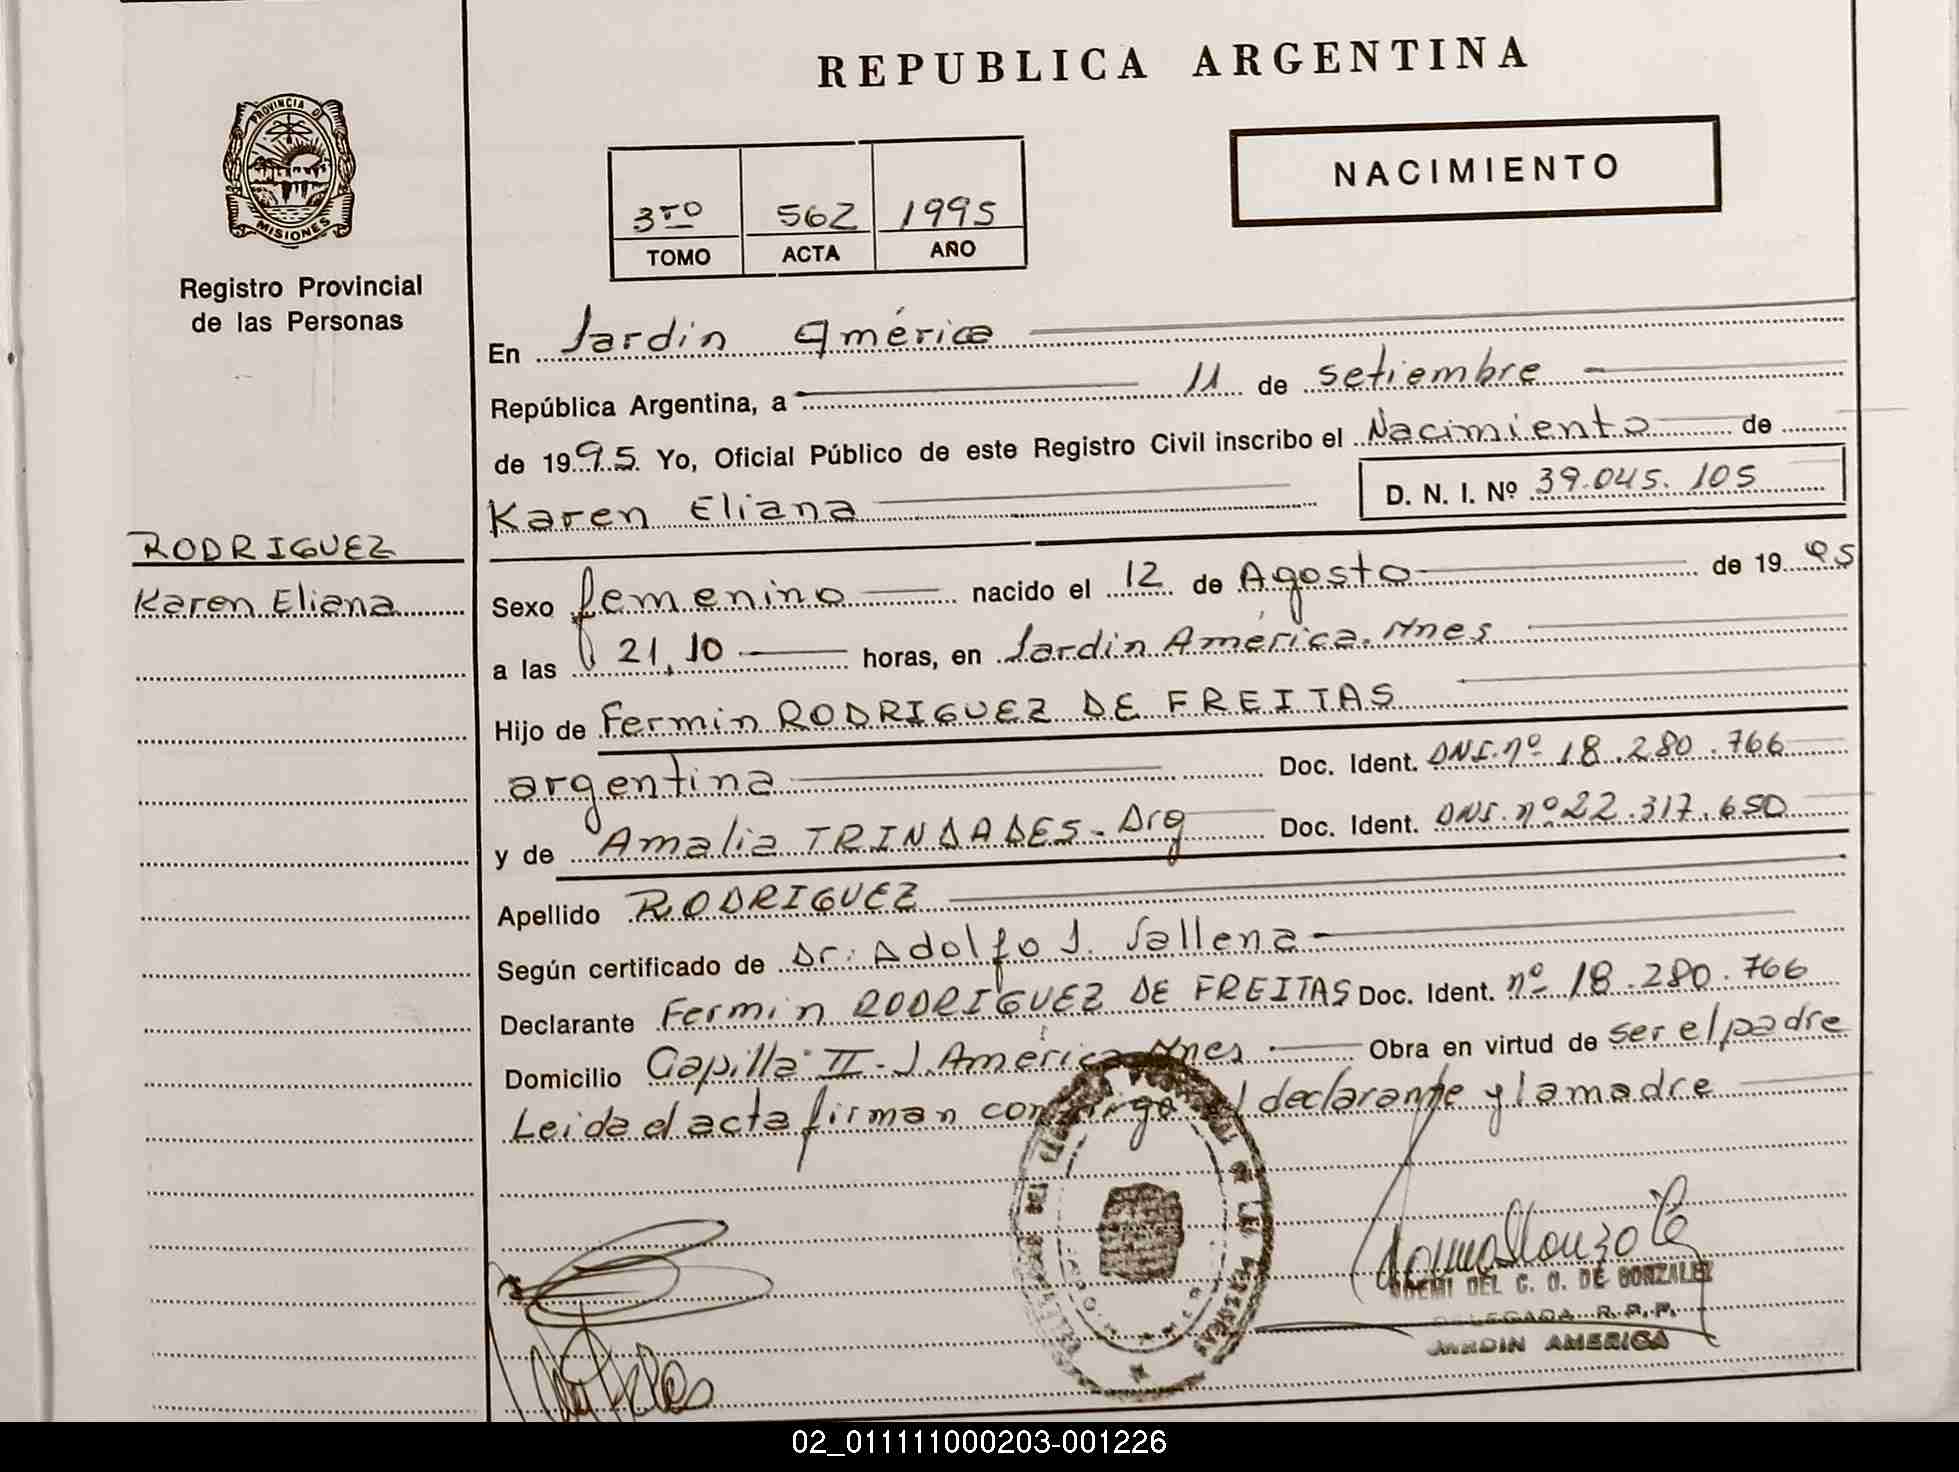 REPUBLICA ARGENTINA
PROVINCIA D
MISIONES
Registro Provincial
de las Personas
NACIMIENTO
3ro 562 1995
TOMO ACTA AÑO
En Jardín América
República Argentina, a 11 de setiembre
de 1995. Yo, Oficial Público de este Registro Civil inscribo el Nacimiento de
D. N. I. Nº 39.045.105
Karen Eliana
RODRIGUEZ
Karen Eliana
Sexo femenino nacido el 12 de Agosto de 1995
a las 21,10 horas, en Jardín América. Mnes
Hijo de Fermin RODRIGUEZ DE FREITAS
argentina Doc. Ident. DNI. nº 18.280.766
y de Amalia TRINDADES - Arg Doc. Ident. DNI. nº 22.317.650
Apellido RODRIGUEZ
Según certificado de Dr. Adolfo J. Sallena
Declarante Fermin RODRIGUEZ DE FREITAS Doc. Ident. nº 18.280.766
Domicilio Capilla II - J. América Mnes Obra en virtud de ser el padre
Leida el acta firman conmigo el declarante y la madre
NOEMI DEL C. O. DE GONZALEZ
DELEGADA R. P. P.
JARDIN AMERICA
02_011111000203-001226